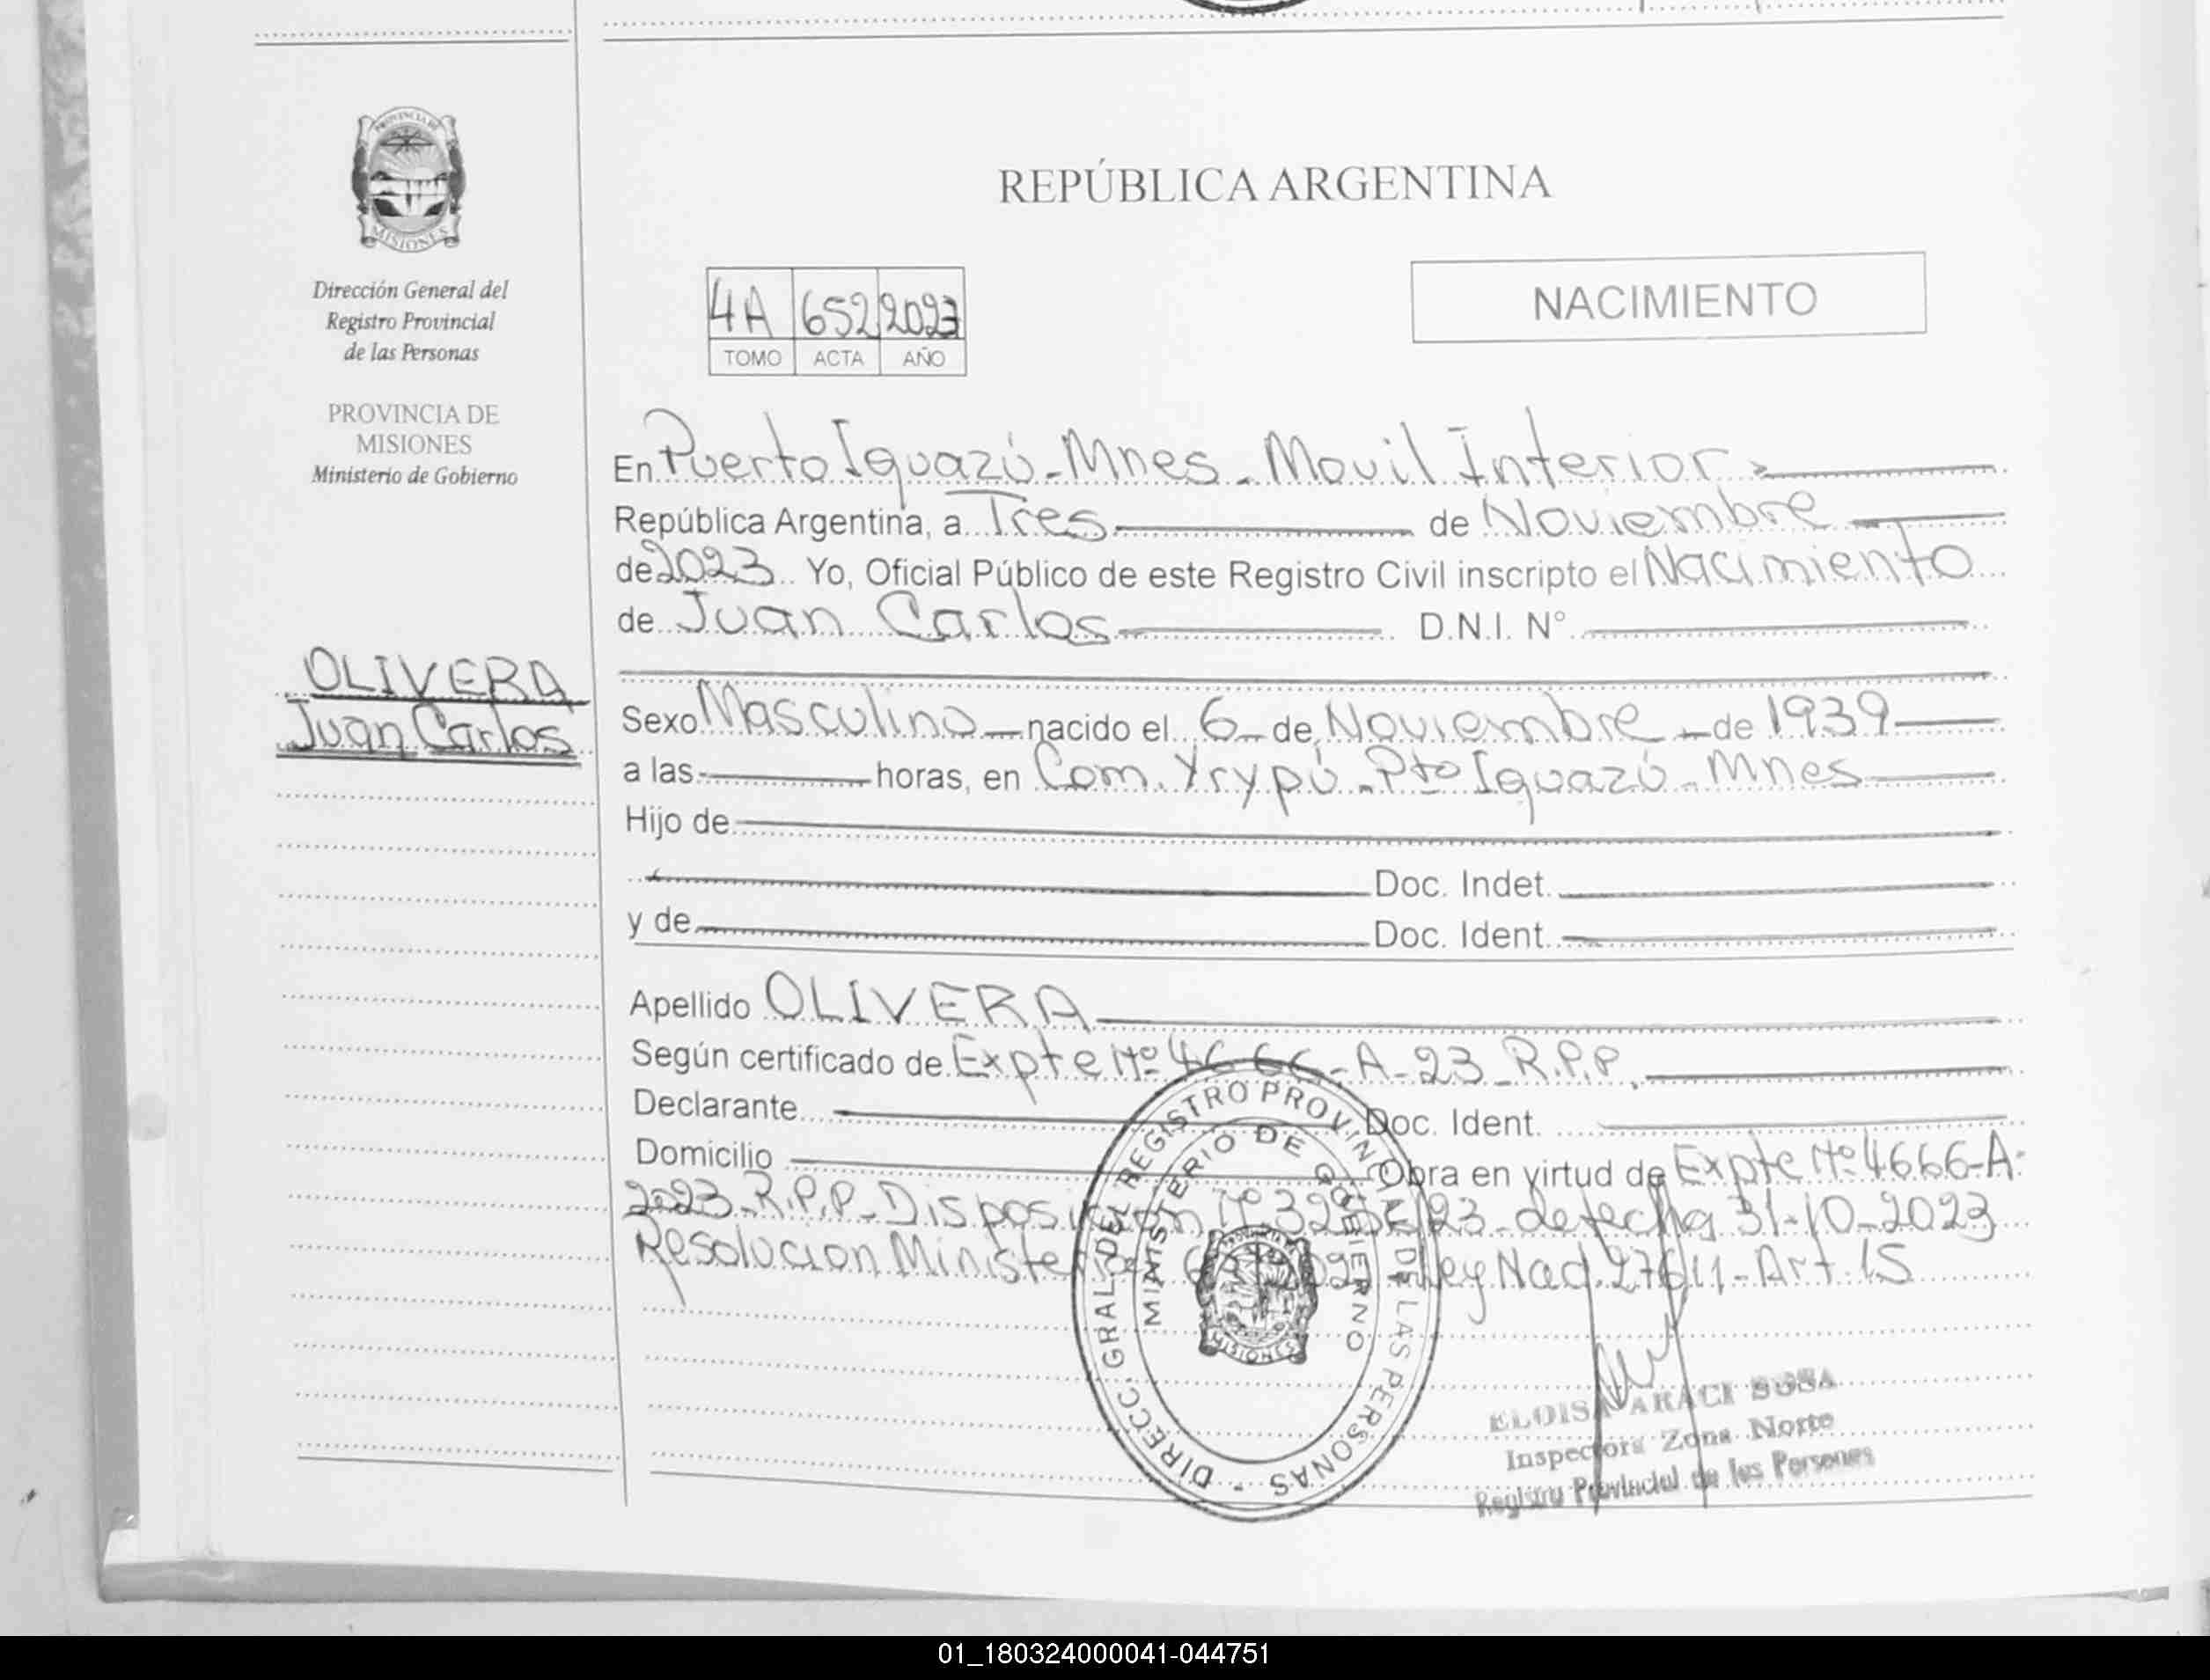 PROVINCIA DE
MISIONES
Dirección General del
Registro Provincial
de las Personas
PROVINCIA DE
MISIONES
Ministerio de Gobierno
OLIVERA
Juan Carlos
REPÚBLICA ARGENTINA
4A 652 2023
TOMO ACTA AÑO
NACIMIENTO
En Puerto Iguazú - Mnes - Movil Interior
República Argentina, a Tres de Noviembre
de 2023 Yo, Oficial Público de este Registro Civil inscripto el Nacimiento
de Juan Carlos D.N.I. N°
Sexo Masculino nacido el 6 de Noviembre de 1939
a las horas, en Com. Yrypú - Pto Iguazú - Mnes
Hijo de
Doc. Indet.
y de Doc. Ident.
Apellido OLIVERA
Según certificado de Expte Nº 4666-A-23 R.P.P.
Declarante Doc. Ident.
Domicilio Obra en virtud de Expte Nº 4666-A-
2023-R.P.P- Disposicion Nº 23 - de fecha 31-10-2023
Resolucion Ley Nac. 27611 - Art. 15
DIRECC. GRAL. DEL REGISTRO PROVINCIAL DE LAS PERSONAS -
MINISTERIO DE GOBIERNO
MISIONES
ELOISA ARACI SOSA
Inspectora Zona Norte
Registro Provincial de las Personas
01_180324000041-044751